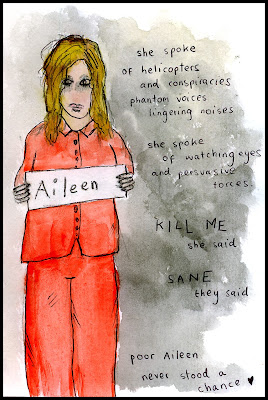 she spoke
of helicopters
and conspiracies
phantom voices
lingering noises
she spoke
of watching eyes
and persuasive
forces.
Aileen
KILL ME
she said
SANE
they said
poor Aileen
never stood a
chance ♥